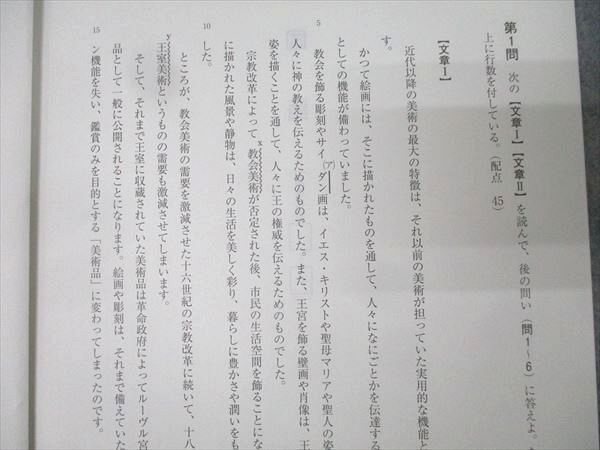 第1問 次の【文章Ⅰ】【文章Ⅱ】を読んで、後の問い(問1~6)に答えよ。
上に行数を付している。(配点 45)
【文章Ⅰ】
近代以降の美術の最大の特徴は、それ以前の美術が担っていた実用的な機能と
す。
かつて絵画には、そこに描かれたものを通して、人々になにごとかを伝達する
としての機能が備わっていました。
5 教会を飾る彫刻やサイ(ア)ダン画は、イエス・キリストや聖母マリアや聖人の姿
人々に神の教えを伝えるためのものでした。また、王宮を飾る壁画や肖像は、王
姿を描くことを通して、人々に王の権威を伝えるためのものでした。
宗教改革によってx教会美術が否定された後、市民の生活空間を飾ることにな
に描かれた風景や静物は、日々の生活を美しく彩り、暮らしに豊かさや潤いをも
10 した。
ところが、教会美術の需要を激減させた十六世紀の宗教改革に続いて、十八
y王室美術というものの需要も激減させてしまいます。
そして、それまで王室に収蔵されていた美術品は革命政府によってルーヴル宮
品として一般に公開されることになります。絵画や彫刻は、それまで備えていた
15 ン機能を失い、鑑賞のみを目的とする「美術品」に変わってしまったのです。